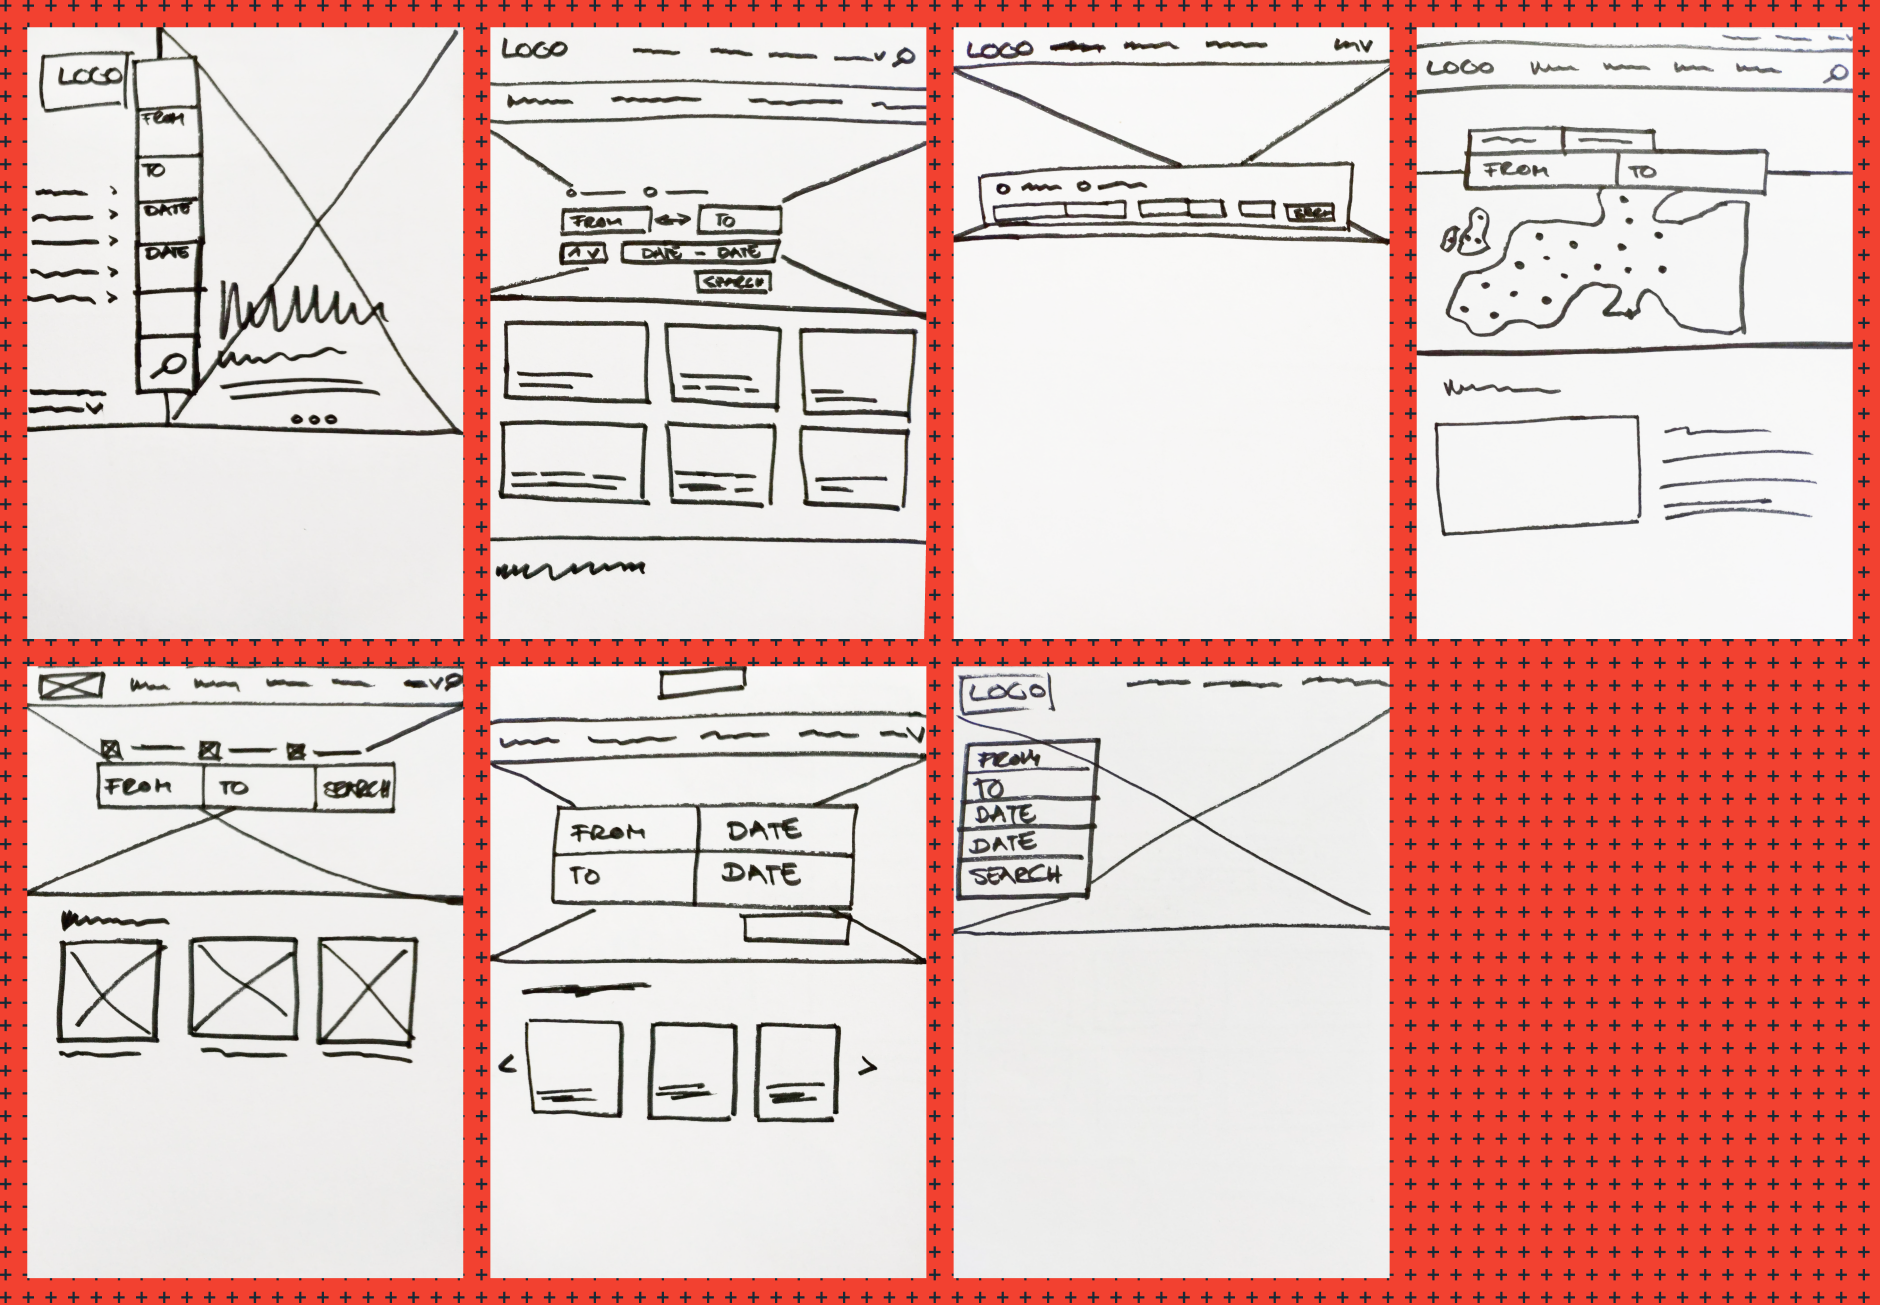 LOGO
FROM
TO
DATE
DATE
LOGO
FROM
TO
DATE - DATE
SEARCH
LOGO
SEARCH
LOGO
FROM
TO
FROM
TO
SEARCH
FROM
DATE
TO
DATE
LOGO
FROM
TO
DATE
DATE
SEARCH